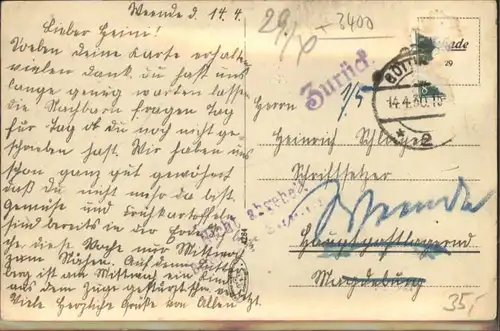 Weende d. 14.4.
Lieber Heini!
Soeben deine Karte erhalten
vielen Dank. du hast uns
lange genug warten lassen
die Nachbarn fragen Tag
für Tag ob du noch nicht ge-
schrieben hast. Wir haben uns
schon ganz gut gewöhnt
daß du nicht mehr da bist.
Gemüse und Frühkartoffeln
sind bereits in der Erde
che, diese Woche nur Mittwoch
zum
berg ist am Mittwoch ein Kind
aus dem Zuge gestürzt
Viele Herzliche Grüße von Allen
3400
Zurück
1/5
14.4.30.15
* 2
29
Herrn
Heinrich
Schriftsetzer
Weende
Hauptpostlagernd
Magdeburg
35,-